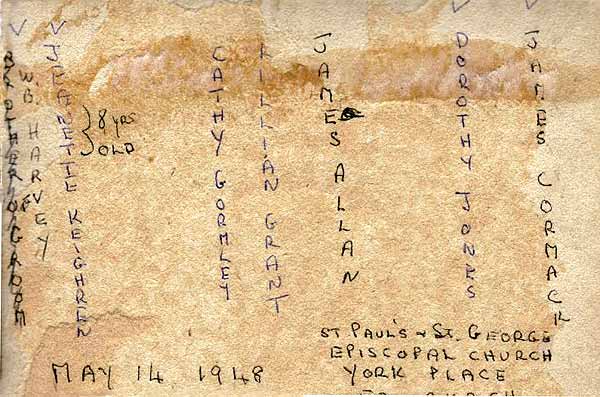 BROTHER GROOM
W.B. HARVEY
JEANETTE KEIGHREN
8 YRS
OLD
CATHY GORMLEY
LILLIAN GRANT
JAMES ALLAN
DOROTHY JONES
JAMES CORMACK
ST PAUL'S + ST. GEORGE
EPISCOPAL CHURCH
YORK PLACE
MAY 14 1948